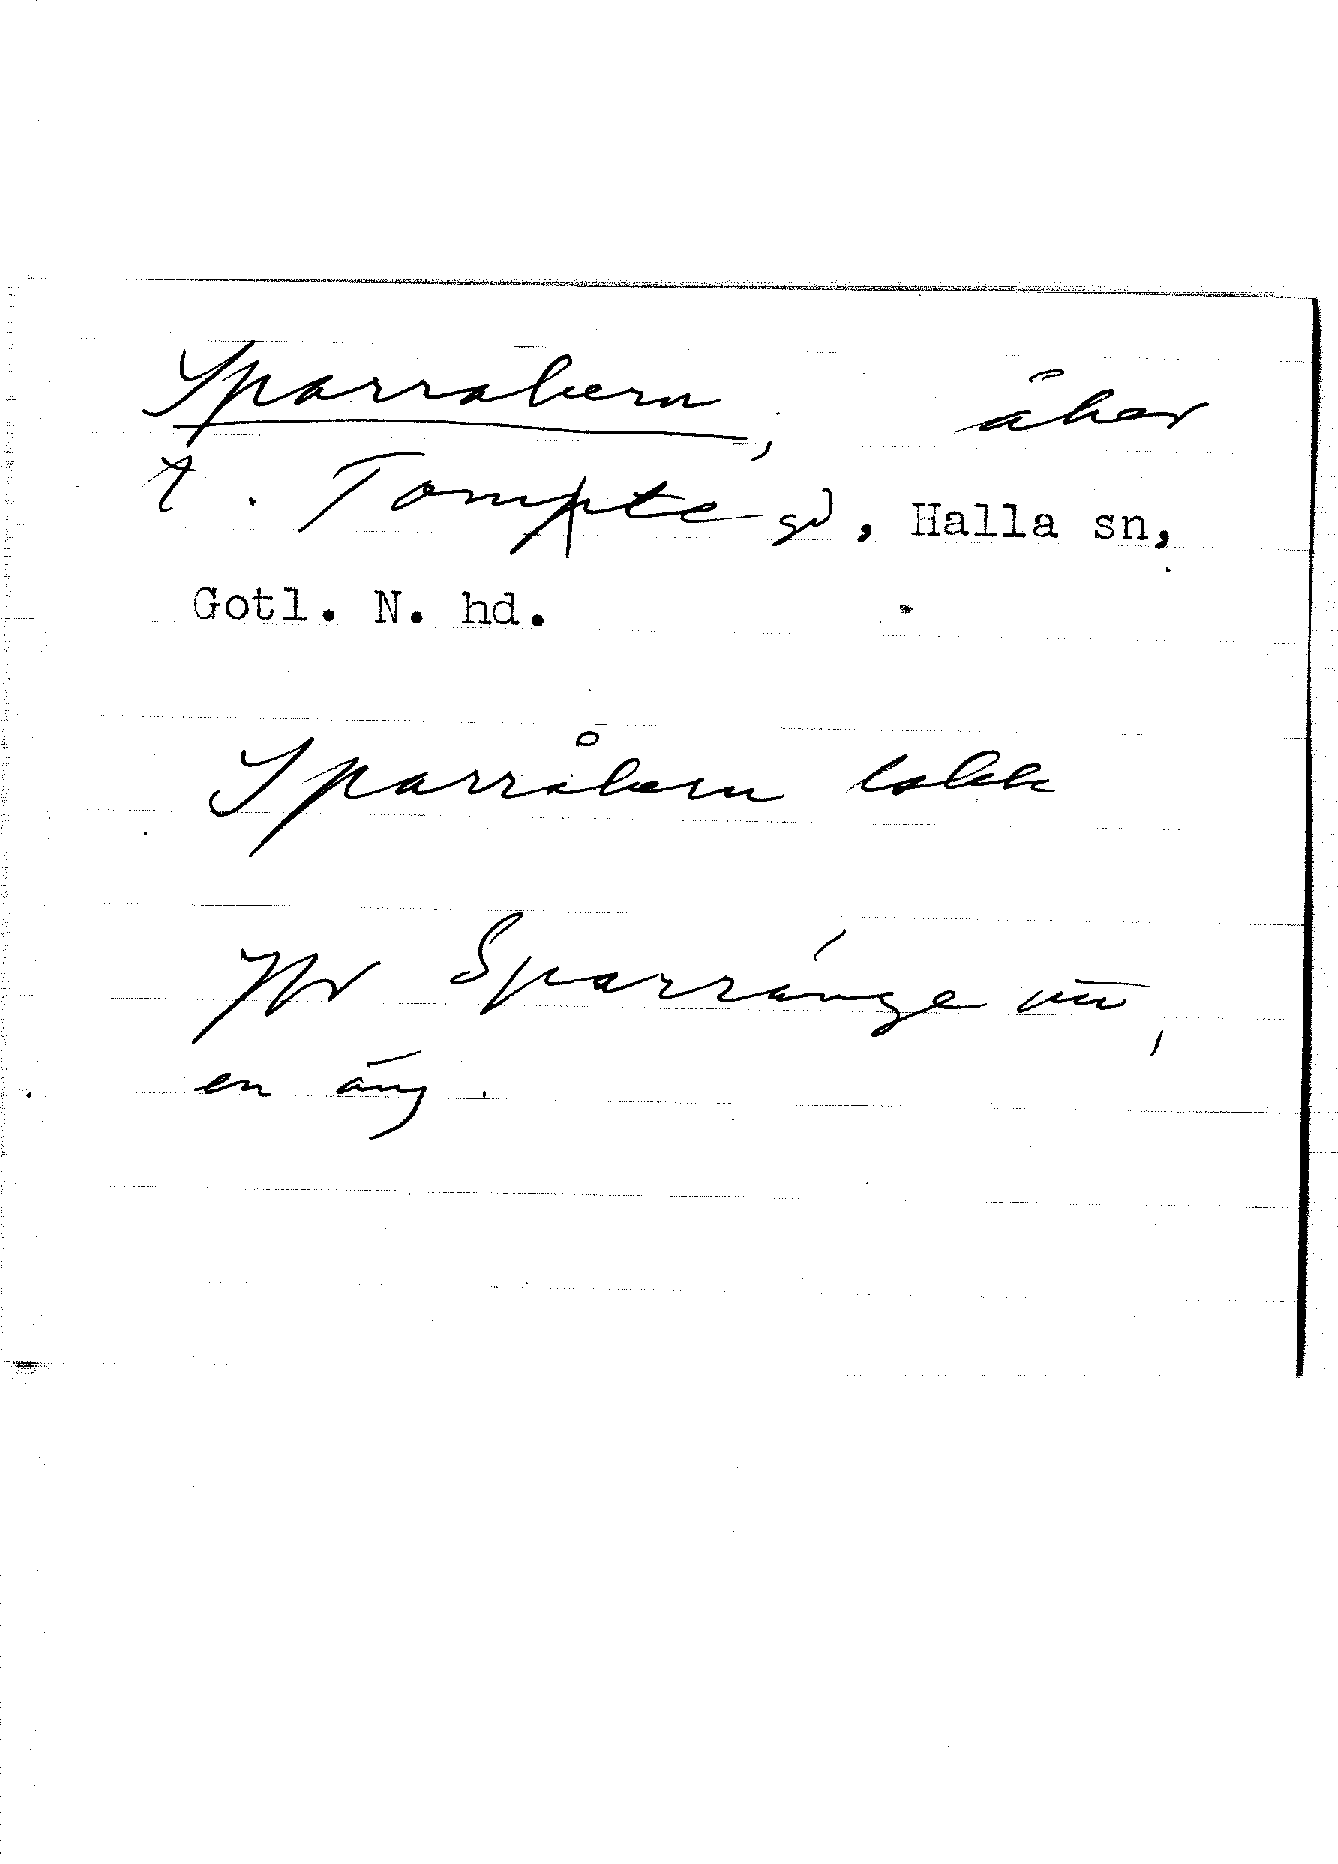 Sparråkern, åker
t. Tompte gd, Halla sn,
Gotl. N. hd.
Sparråkern
Jfr Sparränge
en äng.